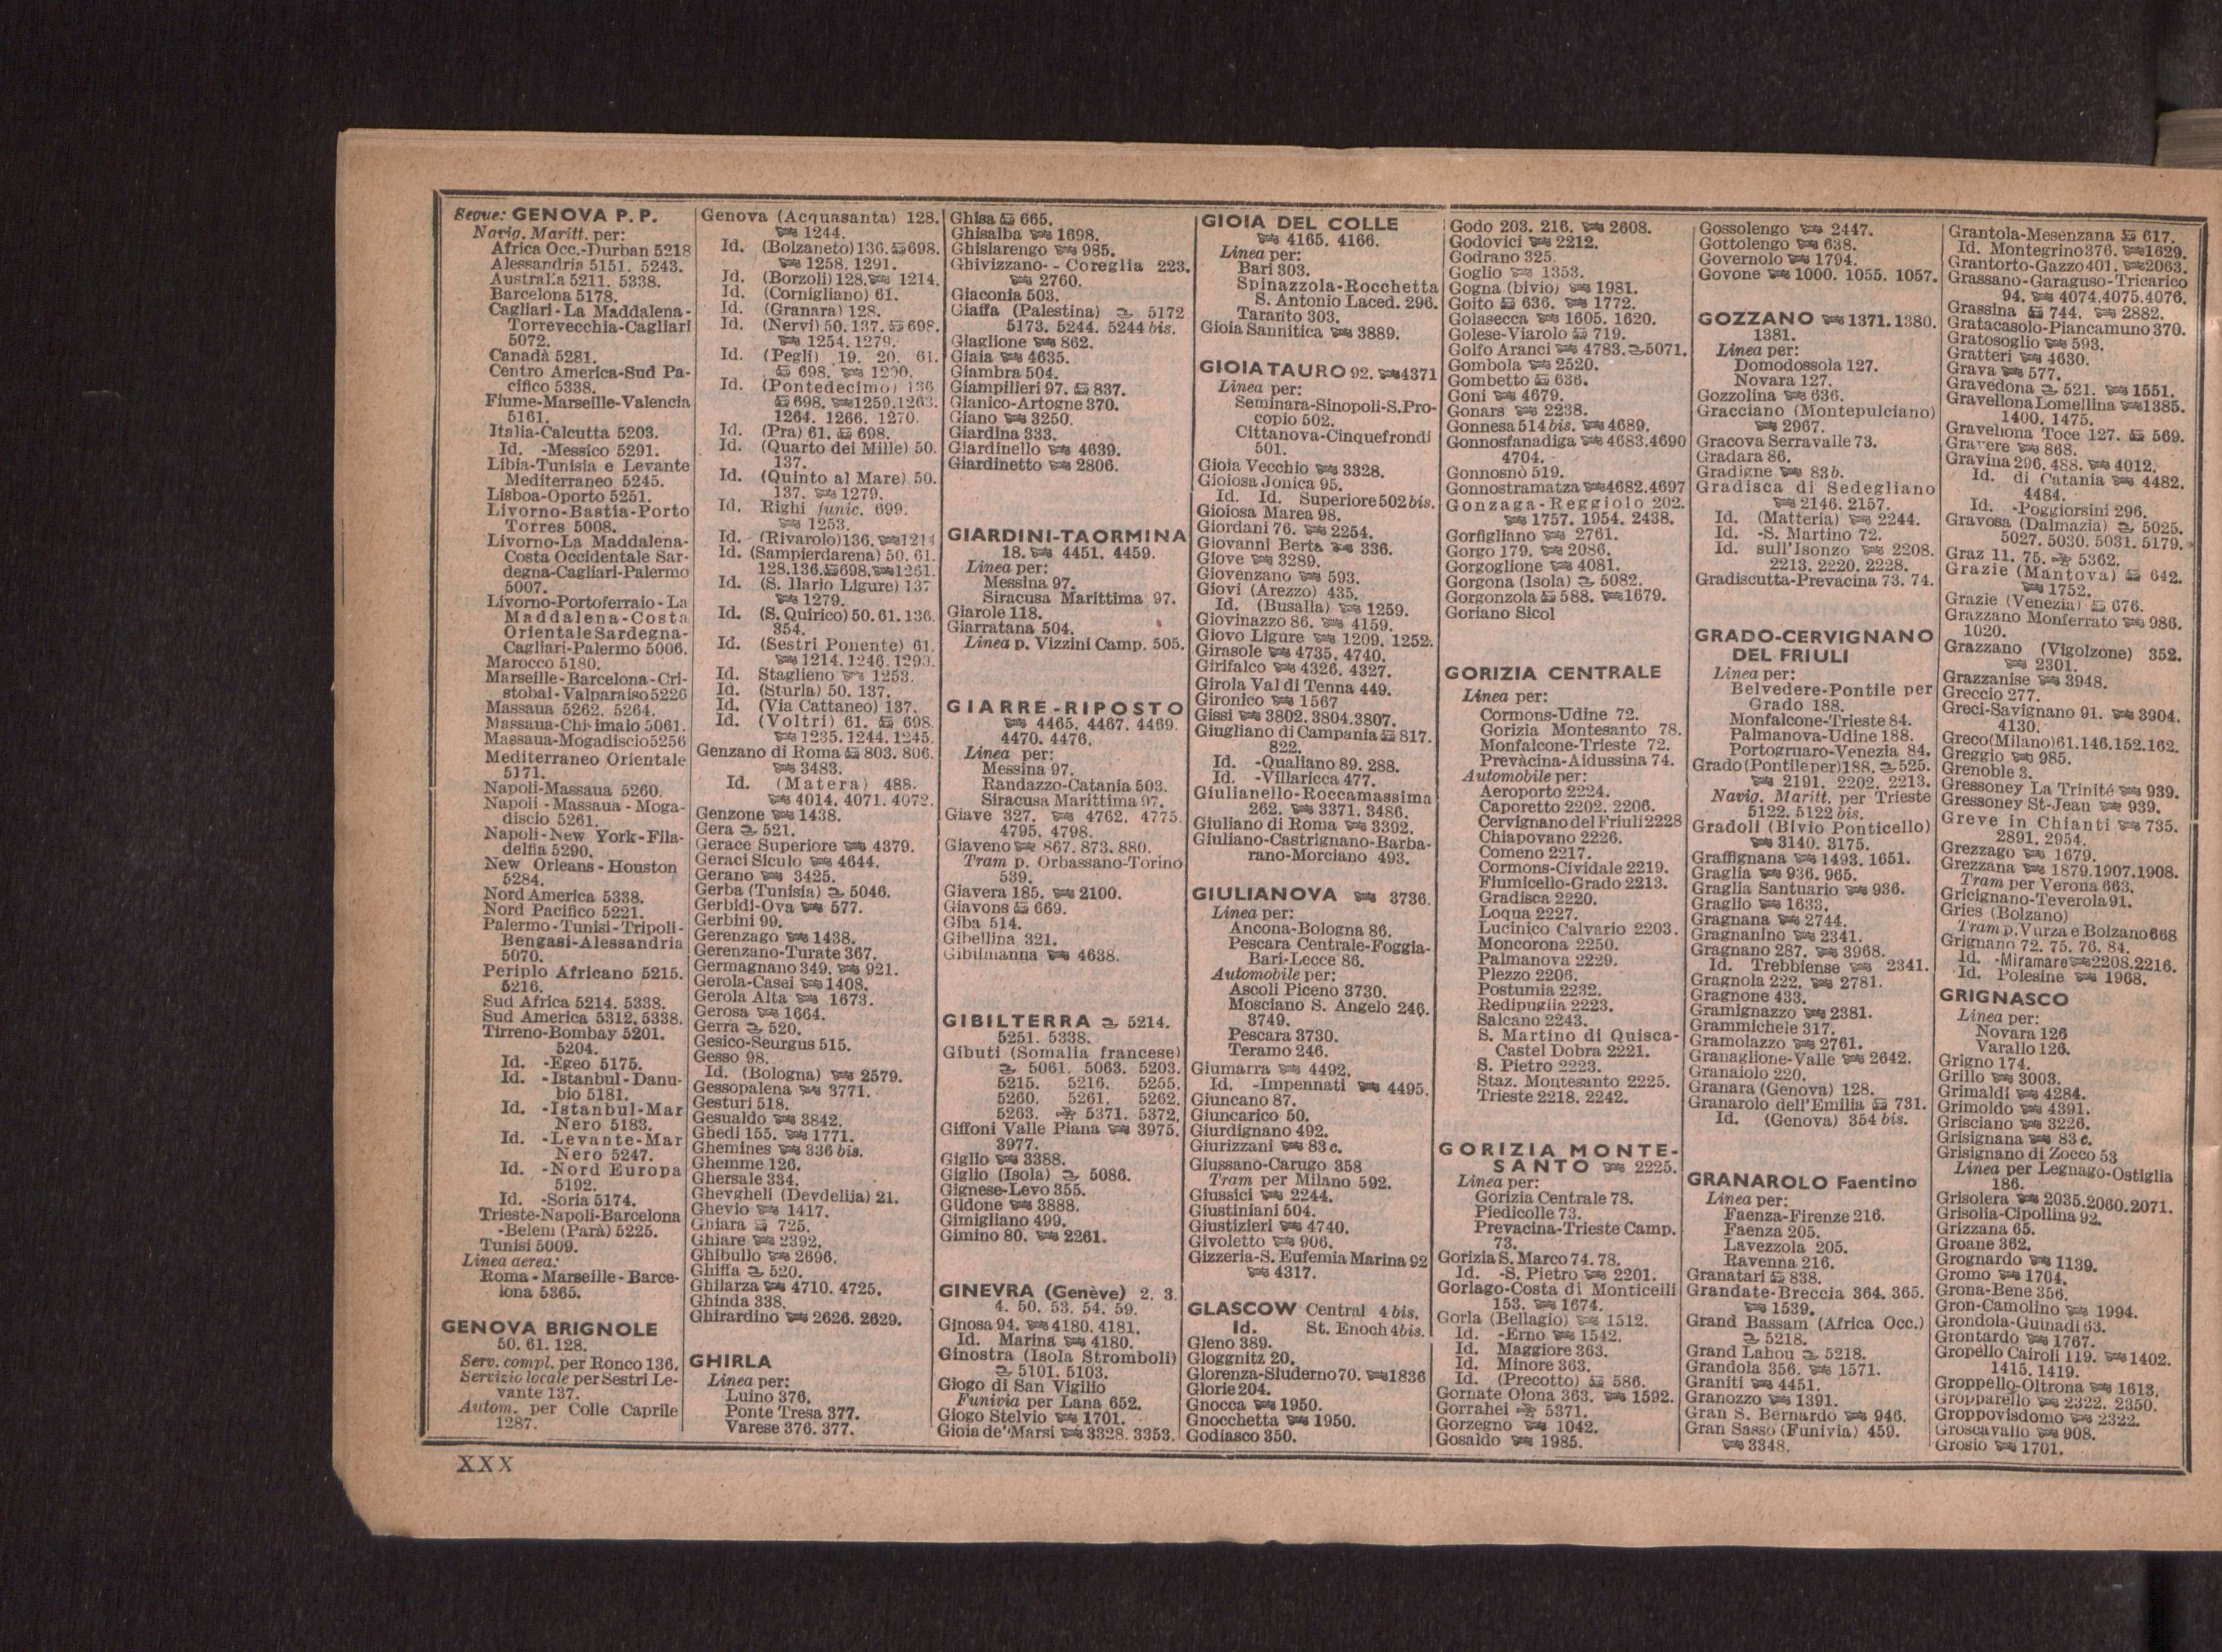 Segue: GENOVA P. P.
Navig. Maritt. per:
Africa Occ.-Durban 5218
Alessandria 5151. 5243.
Australia 5211. 5338.
Barcelona 5178.
Cagliari-La Maddalena-
Torrevecchia-Cagliari
5072.
Canadà 5281.
Centro America-Sud Pa-
cifico 5338.
Fiume-Marseille-Valencia
5161.
Italia-Calcutta 5203.
Id. -Messico 5291.
Libia-Tunisia e Levante
Mediterraneo 5245.
Lisboa-Oporto 5251.
Livorno-Bastia-Porto
Torres 5008.
Livorno-La Maddalena-
Costa Occidentale Sar-
degna-Cagliari-Palermo
5007.
Livorno-Portoferraio-La
Maddalena-Costa
Orientale Sardegna-
Cagliari-Palermo 5006.
Marocco 5180.
Marseille-Barcelona-Cri-
stobal-Valparaiso 5226
Massaua 5262. 5264.
Massaua-Chisimaio 5061.
Massaua-Mogadiscio 5256
Mediterraneo Orientale
5171.
Napoli-Massaua 5260.
Napoli-Massaua-Moga-
discio 5261.
Napoli-New York-Fila-
delfia 5290.
New Orleans-Houston
5284.
Nord America 5338.
Nord Pacifico 5221.
Palermo-Tunisi-Tripoli-
Bengasi-Alessandria
5070.
Periplo Africano 5215.
5216.
Sud Africa 5214. 5338.
Sud America 5312. 5338.
Tirreno-Bombay 5201.
5204.
Id. -Egeo 5175.
Id. -Istanbul-Danu-
bio 5181.
Id. -Istanbul-Mar
Nero 5183.
Id. -Levante-Mar
Nero 5247.
Id. -Nord Europa
5192.
Id. -Soria 5174.
Trieste-Napoli-Barcelona
-Belem (Parà) 5225.
Tunisi 5009.
Linea aerea:
Roma-Marseille-Barce-
lona 5365.
GENOVA BRIGNOLE
50. 61. 128.
Serv. compl. per Ronco 136.
Servizio locale per Sestri Le-
vante 137.
Autom. per Colle Caprile
1287.
Genova (Acquasanta) 128.
1244.
Id. (Bolzaneto) 136. 698.
1258. 1291.
Id. (Borzoli) 128. 1214.
Id. (Cornigliano) 61.
Id. (Granara) 128.
Id. (Nervi) 50. 137. 698.
1254. 1279.
Id. (Pegli) 19. 20. 61.
698. 1290.
Id. (Pontedecimo) 136
698. 1259. 1263.
1264. 1266. 1270.
Id. (Pra) 61. 698.
Id. (Quarto dei Mille) 50.
137.
Id. (Quinto al Mare) 50.
137. 1279.
Id. Righi funic. 699.
1253.
Id. (Rivarolo) 136. 1214
Id. (Sampierdarena) 50. 61.
128. 136. 698. 1261.
Id. (S. Ilario Ligure) 137
1279.
Id. (S. Quirico) 50. 61. 136.
354.
Id. (Sestri Ponente) 61.
1214. 1246. 1290.
Id. Staglieno 1253.
Id. (Sturla) 50. 137.
Id. (Via Cattaneo) 137.
Id. (Voltri) 61. 698.
1235. 1244. 1245.
Genzano di Roma 803. 806.
3483.
Id. (Matera) 488.
4014. 4071. 4072.
Genzone 1438.
Gera 521.
Gerace Superiore 4379.
Geraci Siculo 4644.
Gerano 3425.
Gerba (Tunisia) 5046.
Gerbidi-Ova 577.
Gerbini 99.
Gerenzago 1438.
Gerenzano-Turate 367.
Germagnano 349. 921.
Gerola-Casei 1408.
Gerola Alta 1673.
Gerosa 1664.
Gerra 520.
Gesico-Seurgus 515.
Gesso 98.
Id. (Bologna) 2579.
Gessopalena 3771.
Gesturi 518.
Gesualdo 3842.
Ghedi 155. 1771.
Ghemines 336 bis.
Ghemme 126.
Ghersale 334.
Ghevgheli (Devdelija) 21.
Ghevio 1417.
Ghiara 725.
Ghiare 2392.
Ghibullo 2696.
Ghiffa 520.
Ghilarza 4710. 4725.
Ghinda 338.
Ghirardino 2626. 2629.
GHIRLA
Linea per:
Luino 376.
Ponte Tresa 377.
Varese 376. 377.
Ghisa 665.
Ghisalba 1698.
Ghislarengo 985.
Ghivizzano- - Coreglia 223.
2760.
Giaconia 503.
Giaffa (Palestina) 5172
5173. 5244. 5244 bis.
Giaglione 862.
Giaia 4635.
Giambra 504.
Giampilieri 97. 837.
Gianico-Artogne 370.
Giano 3250.
Giardina 333.
Giardinello 4639.
Giardinetto 2806.
GIARDINI-TAORMINA
18. 4451. 4459.
Linea per:
Messina 97.
Siracusa Marittima 97.
Giarole 118.
Giarratana 504.
Linea p. Vizzini Camp. 505.
GIARRE-RIPOSTO
4465. 4467. 4469.
4470. 4476.
Linea per:
Messina 97.
Randazzo-Catania 503.
Siracusa Marittima 97.
Giave 327. 4762. 4775
4795. 4798.
Giaveno 867. 873. 880.
Tram p. Orbassano-Torino
539.
Giavera 185. 2100.
Giavons 669.
Giba 514.
Gibellina 321.
Gibilmanna 4638.
GIBILTERRA 5214.
5251. 5338.
Gibuti (Somalia francese)
5061. 5063. 5203.
5215. 5216. 5255.
5260. 5261. 5262.
5263. 5371. 5372.
Giffoni Valle Piana 3975.
3977.
Giglio 3388.
Giglio (Isola) 5086.
Gignese-Levo 355.
Gildone 3888.
Gimigliano 499.
Gimino 80. 2261.
GINEVRA (Genève) 2. 3.
4. 50. 53. 54. 59.
Ginosa 94. 4180. 4181.
Id. Marina 4180.
Ginostra (Isola Stromboli)
5101. 5103.
Giogo di San Vigilio
Funivia per Lana 652.
Giogo Stelvio 1701.
Gioia de' Marsi 3328. 3353.
GIOIA DEL COLLE
4165. 4166.
Linea per:
Bari 303.
Spinazzola-Rocchetta
S. Antonio Laced. 296.
Taranto 303.
Gioia Sannitica 3889.
GIOIA TAURO 92. 4371
Linea per:
Seminara-Sinopoli-S. Pro-
copio 502.
Cittanova-Cinquefrondi
501.
Gioia Vecchio 3328.
Gioiosa Jonica 95.
Id. Id. Superiore 502 bis.
Gioiosa Marea 98.
Giordani 76. 2254.
Giovanni Berta 336.
Giove 3289.
Giovenzano 593.
Giovi (Arezzo) 435.
Id. (Busalla) 1259.
Giovinazzo 86. 4159.
Giovo Ligure 1209. 1252.
Girasole 4735. 4740.
Girifalco 4326. 4327.
Girola Val di Tenna 449.
Gironico 1567
Gissi 3802. 3804. 3807.
Giugliano di Campania 817.
822.
Id. -Qualiano 89. 288.
Id. -Villaricca 477.
Giulianello-Roccamassima
262. 3371. 3486.
Giuliano di Roma 3392.
Giuliano-Castrignano-Barba-
rano-Morciano 493.
GIULIANOVA 3736.
Linea per:
Ancona-Bologna 86.
Pescara Centrale-Foggia-
Bari-Lecce 86.
Automobile per:
Ascoli Piceno 3730.
Mosciano S. Angelo 246.
3749.
Pescara 3730.
Teramo 246.
Giumarra 4492.
Id. -Impennati 4495.
Giuncano 87.
Giuncarico 50.
Giurdignano 492.
Giurizzani 83 c.
Giussano-Carugo 358
Tram per Milano 592.
Giussici 2244.
Giustiniani 504.
Giustizieri 4740.
Givoletto 906.
Gizzeria-S. Eufemia Marina 92
4317.
GLASCOW Central 4 bis.
Id. St. Enoch 4 bis.
Gleno 389.
Gloggnitz 20.
Glorenza-Sluderno 70. 1836
Glorie 204.
Gnocca 1950.
Gnocchetta 1950.
Godiasco 350.
Godo 203. 216. 2608.
Godovici 2212.
Godrano 325.
Goglio 1353.
Gogna (bivio) 1981.
Goito 636. 1772.
Golasecca 1605. 1620.
Golese-Viarolo 719.
Golfo Aranci 4783. 5071.
Gombola 2520.
Gombetto 636.
Goni 4679.
Gonars 2238.
Gonnesa 514 bis. 4689.
Gonnosfanadiga 4683. 4690
4704.
Gonnosnò 519.
Gonnostramatza 4682. 4697
Gonzaga-Reggiolo 202.
1757. 1954. 2438.
Gorfigliano 2761.
Gorgo 179. 2086.
Gorgoglione 4081.
Gorgona (Isola) 5082.
Gorgonzola 588. 1679.
Goriano Sicol
GORIZIA CENTRALE
Linea per:
Cormons-Udine 72.
Gorizia Montesanto 78.
Monfalcone-Trieste 72.
Prevàcina-Aidussina 74.
Automobile per:
Aeroporto 2224.
Caporetto 2202. 2206.
Cervignano del Friuli 2228
Chiapovano 2226.
Comeno 2217.
Cormons-Cividale 2219.
Fiumicello-Grado 2213.
Gradisca 2220.
Loqua 2227.
Lucinico Calvario 2203.
Moncorona 2250.
Palmanova 2229.
Plezzo 2206.
Postumia 2232.
Redipuglia 2223.
Salcano 2243.
S. Martino di Quisca-
Castel Dobra 2221.
S. Pietro 2223.
Staz. Montesanto 2225.
Trieste 2218. 2242.
GORIZIA MONTE-
SANTO 2225.
Linea per:
Gorizia Centrale 78.
Piedicolle 73.
Prevacina-Trieste Camp.
73.
Gorizia S. Marco 74. 78.
Id. -S. Pietro 2201.
Gorlago-Costa di Monticelli
153. 1674.
Gorla (Bellagio) 1512.
Id. -Erno 1542.
Id. Maggiore 363.
Id. Minore 363.
Id. (Precotto) 586.
Gornate Olona 363. 1592.
Gorrahei 5371.
Gorzegno 1042.
Gosaldo 1985.
Gossolengo 2447.
Gottolengo 638.
Governolo 1794.
Govone 1000. 1055. 1057.
GOZZANO 1371. 1380.
1381.
Linea per:
Domodossola 127.
Novara 127.
Gozzolina 636.
Gracciano (Montepulciano)
2967.
Gracova Serravalle 73.
Gradara 86.
Gradigne 83b.
Gradisca di Sedegliano
2146. 2157.
Id. (Matteria) 2244.
Id. -S. Martino 72.
Id. sull'Isonzo 2208.
2213. 2220. 2228.
Gradiscutta-Prevacina 73. 74.
GRADO-CERVIGNANO
DEL FRIULI
Linea per:
Belvedere-Pontile per
Grado 188.
Monfalcone-Trieste 84.
Palmanova-Udine 188.
Portogruaro-Venezia 84.
Grado (Pontile per) 188. 525.
2191. 2202. 2213.
Navig. Maritt. per Trieste
5122. 5122 bis.
Gradoli (Bivio Ponticello)
3140. 3175.
Graffignana 1493. 1651.
Graglia 936. 965.
Graglia Santuario 936.
Graglio 1633.
Gragnana 2744.
Gragnanino 2341.
Gragnano 287. 3968.
Id. Trebbiense 2341.
Gragnola 222. 2781.
Gragnone 433.
Gramignazzo 2381.
Grammichele 317.
Gramolazzo 2761.
Granaglione-Valle 2642.
Granaiolo 220.
Granara (Genova) 128.
Granarolo dell'Emilia 731.
Id. (Genova) 354 bis.
GRANAROLO Faentino
Linea per:
Faenza-Firenze 216.
Faenza 205.
Lavezzola 205.
Ravenna 216.
Granatari 838.
Grandate-Breccia 364. 365.
1539.
Grand Bassam (Africa Occ.)
5218.
Grand Lahou 5218.
Grandola 356. 1571.
Graniti 4451.
Granozzo 1391.
Gran S. Bernardo 946.
Gran Sasso (Funivia) 459.
3348.
Grantola-Mesenzana 617.
Id. Montegrino 376. 1629.
Grantorto-Gazzo 401. 2063.
Grassano-Garaguso-Tricarico
94. 4074. 4075. 4076.
Grassina 744. 2882.
Gratacasolo-Piancamuno 370.
Gratosoglio 593.
Gratteri 4630.
Grava 577.
Gravedona 521. 1551.
Gravellona Lomellina 1385.
1400. 1475.
Gravellona Toce 127. 569.
Gravere 868.
Gravina 296. 488. 4012.
Id. di Catania 4482.
4484.
Id. -Poggiorsini 296.
Gravosa (Dalmazia) 5025.
5027. 5030. 5031. 5179.
Graz 11. 75. 5362.
Grazie (Mantova) 642.
1752.
Grazie (Venezia) 676.
Grazzano Monferrato 986.
1020.
Grazzano (Vigolzone) 352.
2301.
Grazzanise 3948.
Greccio 277.
Greci-Savignano 91. 3904.
4130.
Greco (Milano) 61. 146. 152. 162.
Greggio 985.
Grenoble 3.
Gressoney La Trinité 939.
Gressoney St-Jean 939.
Greve in Chianti 735.
2891. 2954.
Grezzago 1679.
Grezzana 1879. 1907. 1908.
Tram per Verona 663.
Gricignano-Teverola 91.
Gries (Bolzano)
Tram p. Vurza e Bolzano 668
Grignano 72. 75. 76. 84.
Id. -Miramare 2208. 2216.
Id. Polesine 1968.
GRIGNASCO
Linea per:
Novara 126
Varallo 126.
Grigno 174.
Grillo 3003.
Grimaldi 4284.
Grimoldo 4391.
Grisciano 3226.
Grisignana 83 c.
Grisignano di Zocco 53
Linea per Legnago-Ostiglia
186.
Grisolera 2035. 2060. 2071.
Grisolia-Cipollina 92.
Grizzana 65.
Groane 362.
Grognardo 1139.
Gromo 1704.
Grona-Bene 356.
Gron-Camolino 1994.
Grondola-Guinadi 63.
Grontardo 1767.
Gropello Cairoli 119. 1402.
1415. 1419.
Groppello-Oltrona 1613.
Gropparello 2322. 2350.
Groppovisdomo 2322.
Groscavallo 908.
Grosio 1701.
XXX